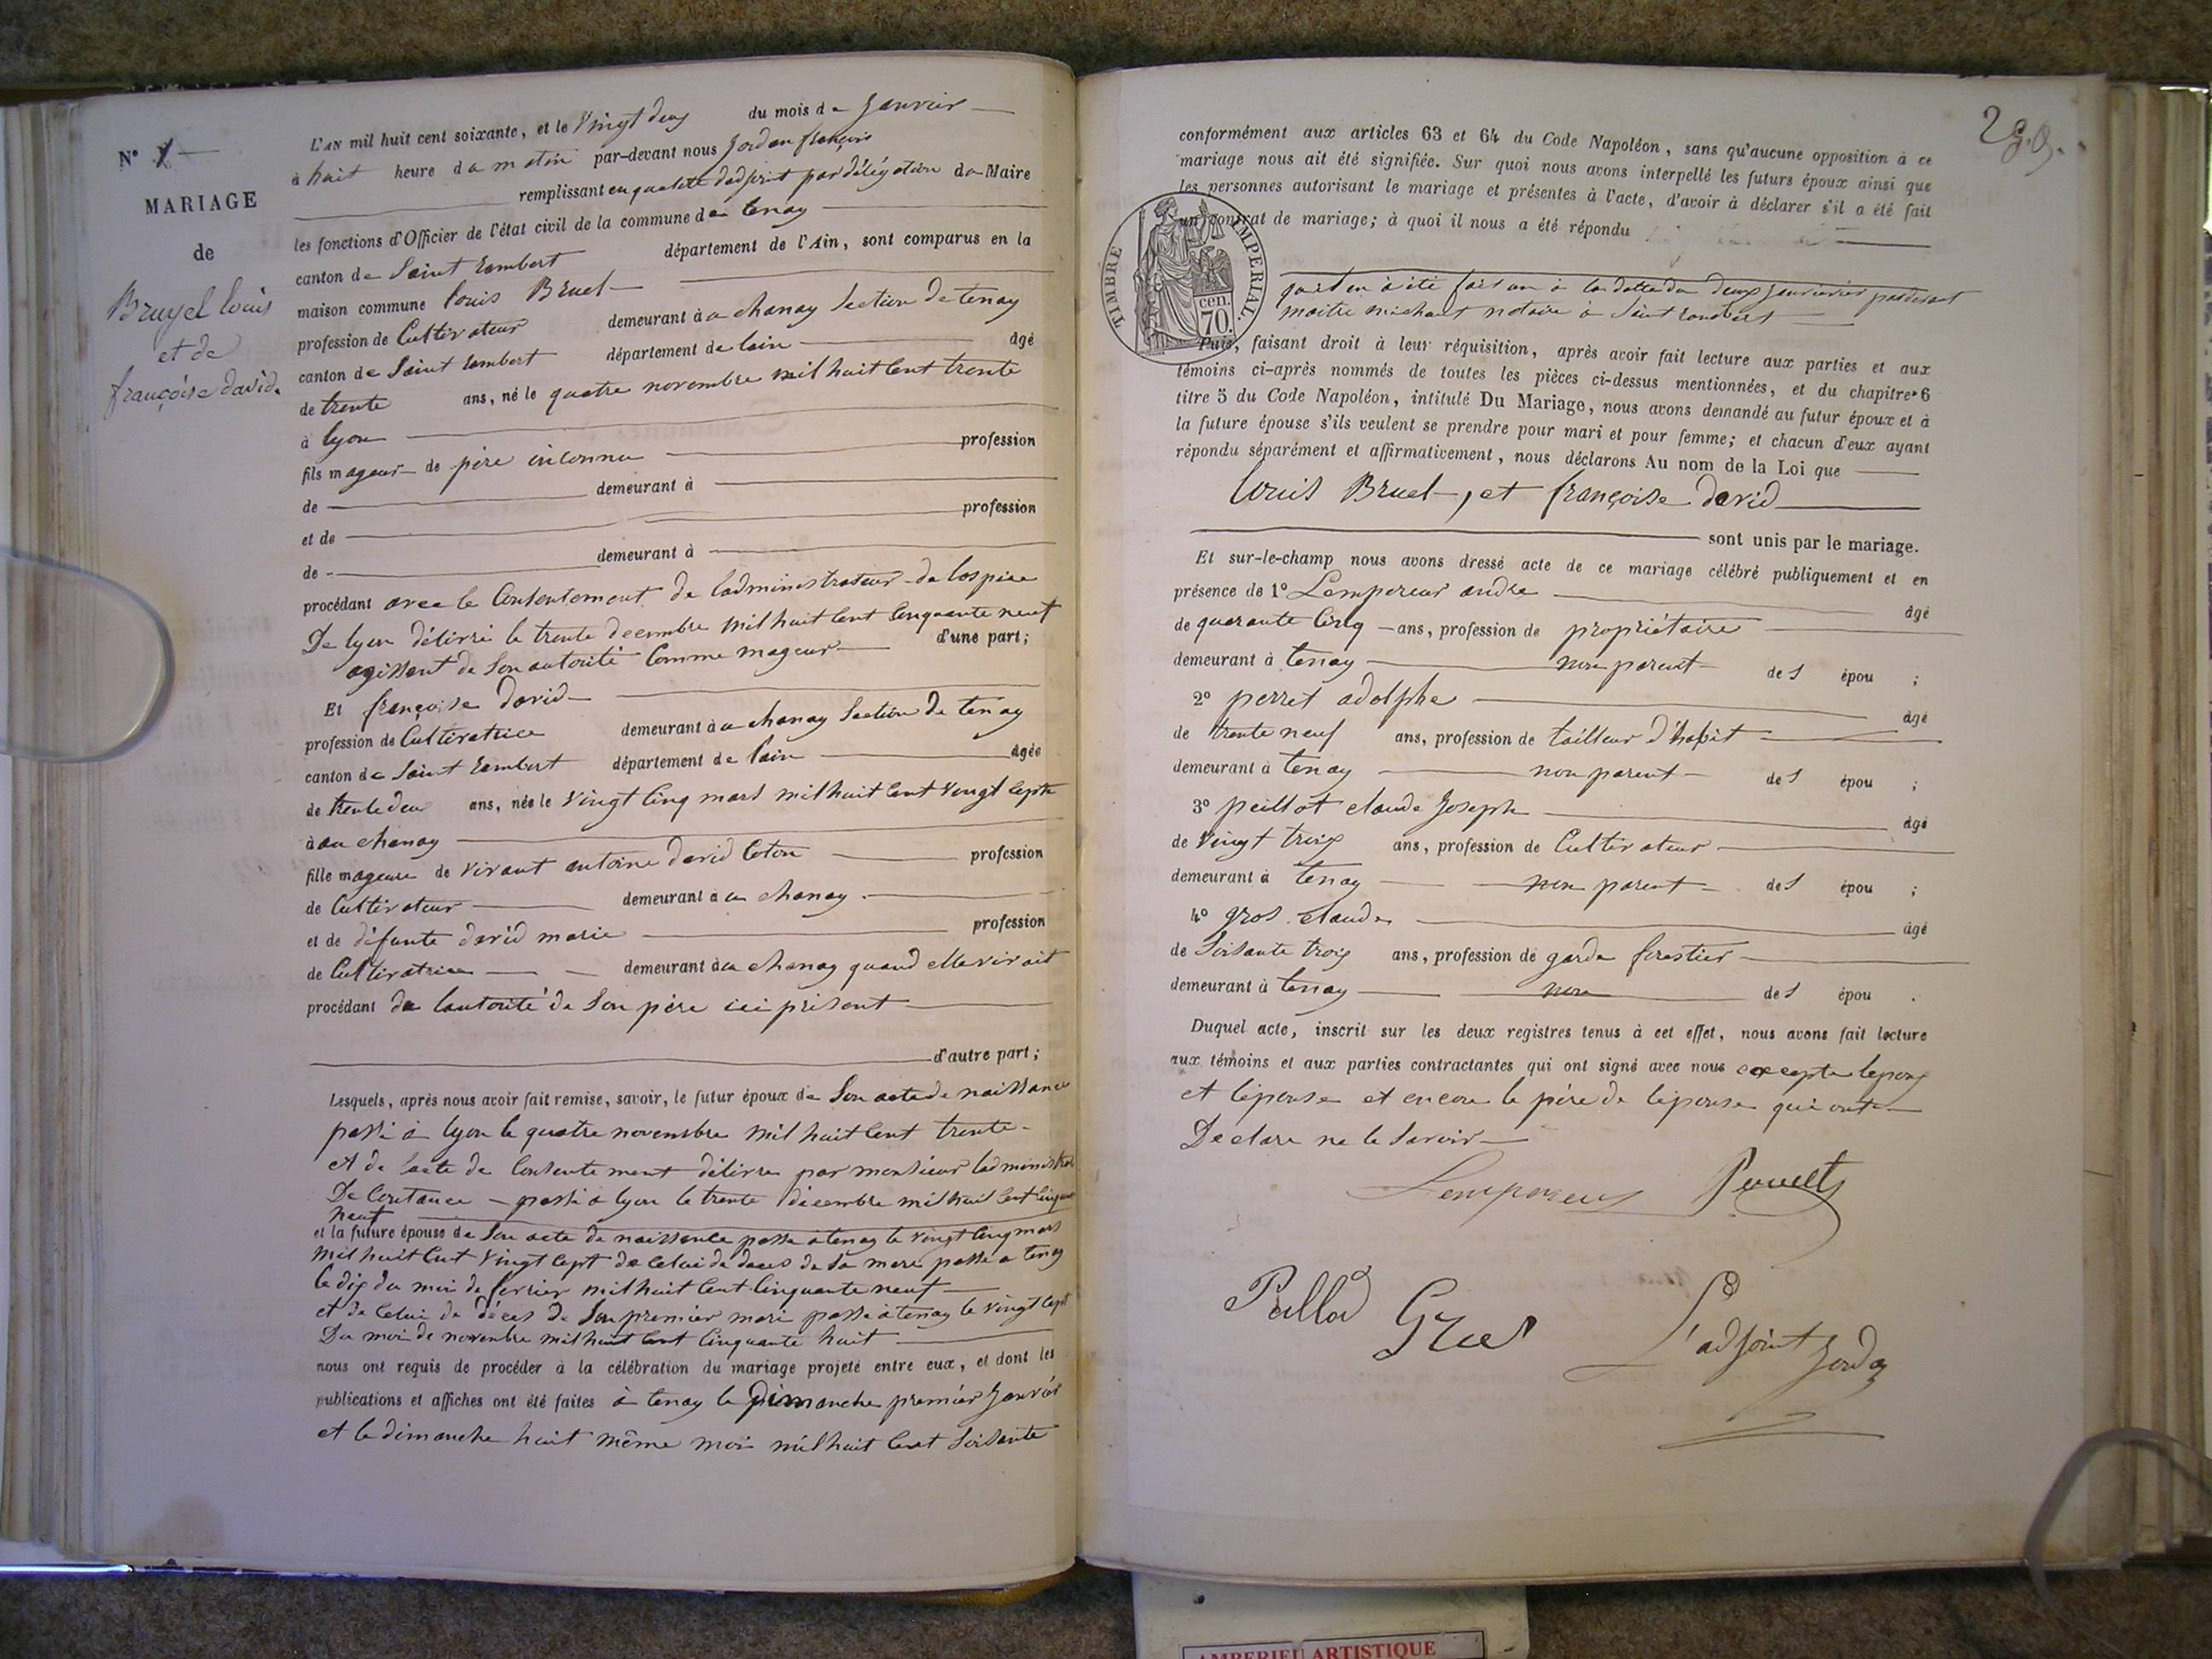 N° 1
MARIAGE
de
Bruyel louis
et de
françoise david.
L'AN mil huit cent soixante, et le Vingt deux du mois de Janvier
à huit heure du matin par-devant nous Jordan françois
remplissant en qualité dadjoint par délégation du Maire
les fonctions d'Officier de l'état civil de la commune de tenay
canton de Saint Rambert département de l'Ain, sont comparus en la
maison commune louis Bruel
profession de Cultivateur demeurant à au chanay Section de tenay
canton de Saint Rambert département de lain âgé
de trente ans, né le quatre novembre mil huit Cent trente
à lyon
fils mageur de père inconnu profession
de demeurant à
et de profession
de demeurant à
procédant avec le Consentement de ladministrateur de lospice
De lyon délivré le trente decembre mil huit Cent Cinquante neuf
agissant de Son autorité Comme mageur d'une part;
Et françoise david
profession de Cultivatrice demeurant à au chanay Section de tenay
canton de Saint Rambert département de lain âgée
de trente deu ans, née le Vingt Cinq mars mil huit Cent Vingt Cept
à au chanay
fille mageure de vivant antoine david Coton profession
de Cultivateur demeurant à au chanay
et de défunte david marie profession
de Cultivatrice demeurant à au chanay quand elle vivait
procédant de lautorité de Son père ici présent
d'autre part;
Lesquels, après nous avoir fait remise, savoir, le futur époux de Son acte de naissance
passé à lyon le quatre novembre mil huit Cent trente
et de lacte de Consentement délivré par monsieur ladministra
De Coutance passé a lyon le trente décembre mil huit Cent Cinquan
neuf
et la future épouse de Son acte de naissance passé a tenay le vingt Cinq mars
mil huit Cent Vingt Cept de Celui de deces de Sa mere passé a tenay
le dix du moi de fevrier mil huit Cent Cinquante neuf
et de Celui de déces de Son premier mari passé à tenay le vingt Cept
Du moi de novembre mil huit Cent Cinquante huit
nous ont requis de procéder à la célébration du mariage projeté entre eux, et dont les
publications et affiches ont été faites à tenay le Dimanche premier Janvier
et le dimanche huit même moi mil huit Cent Soisante
conformément aux articles 63 et 64 du Code Napoléon, sans qu'aucune opposition à ce
mariage nous ait été signifiée. Sur quoi nous avons interpellé les futurs époux ainsi que
les personnes autorisant le mariage et présentes à l'acte, d'avoir à déclarer s'il a été fait
un contrat de mariage; à quoi il nous a été répondu
TIMBRE IMPERIAL.
70 cen.
quil en à été fait un à la datte du deux Janvier pardevant
maitre michaut notaire à Saint rambert
Puis, faisant droit à leur réquisition, après avoir fait lecture aux parties et aux
témoins ci-après nommés de toutes les pièces ci-dessus mentionnées, et du chapitre 6
titre 5 du Code Napoléon, intitulé Du Mariage, nous avons demandé au futur époux et à
la future épouse s'ils veulent se prendre pour mari et pour femme; et chacun d'eux ayant
répondu séparément et affirmativement, nous déclarons Au nom de la Loi que
louis Bruel, et françoise david
sont unis par le mariage.
Et sur-le-champ nous avons dressé acte de ce mariage célébré publiquement et en
présence de 1° Lempereur andre âgé
de quarante Cinq ans, profession de propriétaire
demeurant à tenay non parent des épou ;
2° perret adolphe âgé
de trente neuf ans, profession de tailleur d'habit
demeurant à tenay non parent des épou ;
3° peillot claude Joseph âgé
de Vingt trois ans, profession de Cultivateur
demeurant à tenay non parent des épou ;
4° gros claude âgé
de Soisante trois ans, profession de garde forestier
demeurant à tenay non des épou .
Duquel acte, inscrit sur les deux registres tenus à cet effet, nous avons fait lecture
aux témoins et aux parties contractantes qui ont signé avec nous excepte lepoux
et lépouse et encore le père de lépouse qui ont
Declare ne le Savoir
Lempereur
Gros
L'adjoint Jordan
AMBERIEU ARTISTIQUE